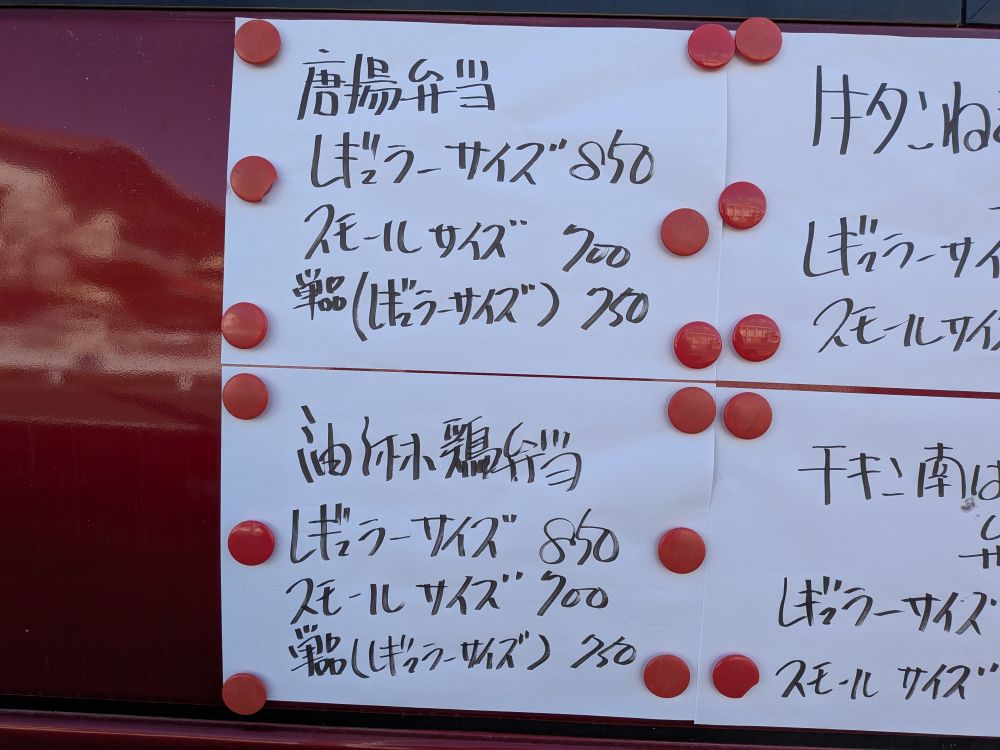 唐揚弁当
レギュラーサイズ 850
スモールサイズ 700
単品(レギュラーサイズ) 750
油淋鶏弁当
レギュラーサイズ 850
スモールサイズ 700
単品(レギュラーサイズ) 750
牛タンね
レギュラーサイ
スモールサイズ
チキン南ば
レギュラーサイズ
スモールサイズ